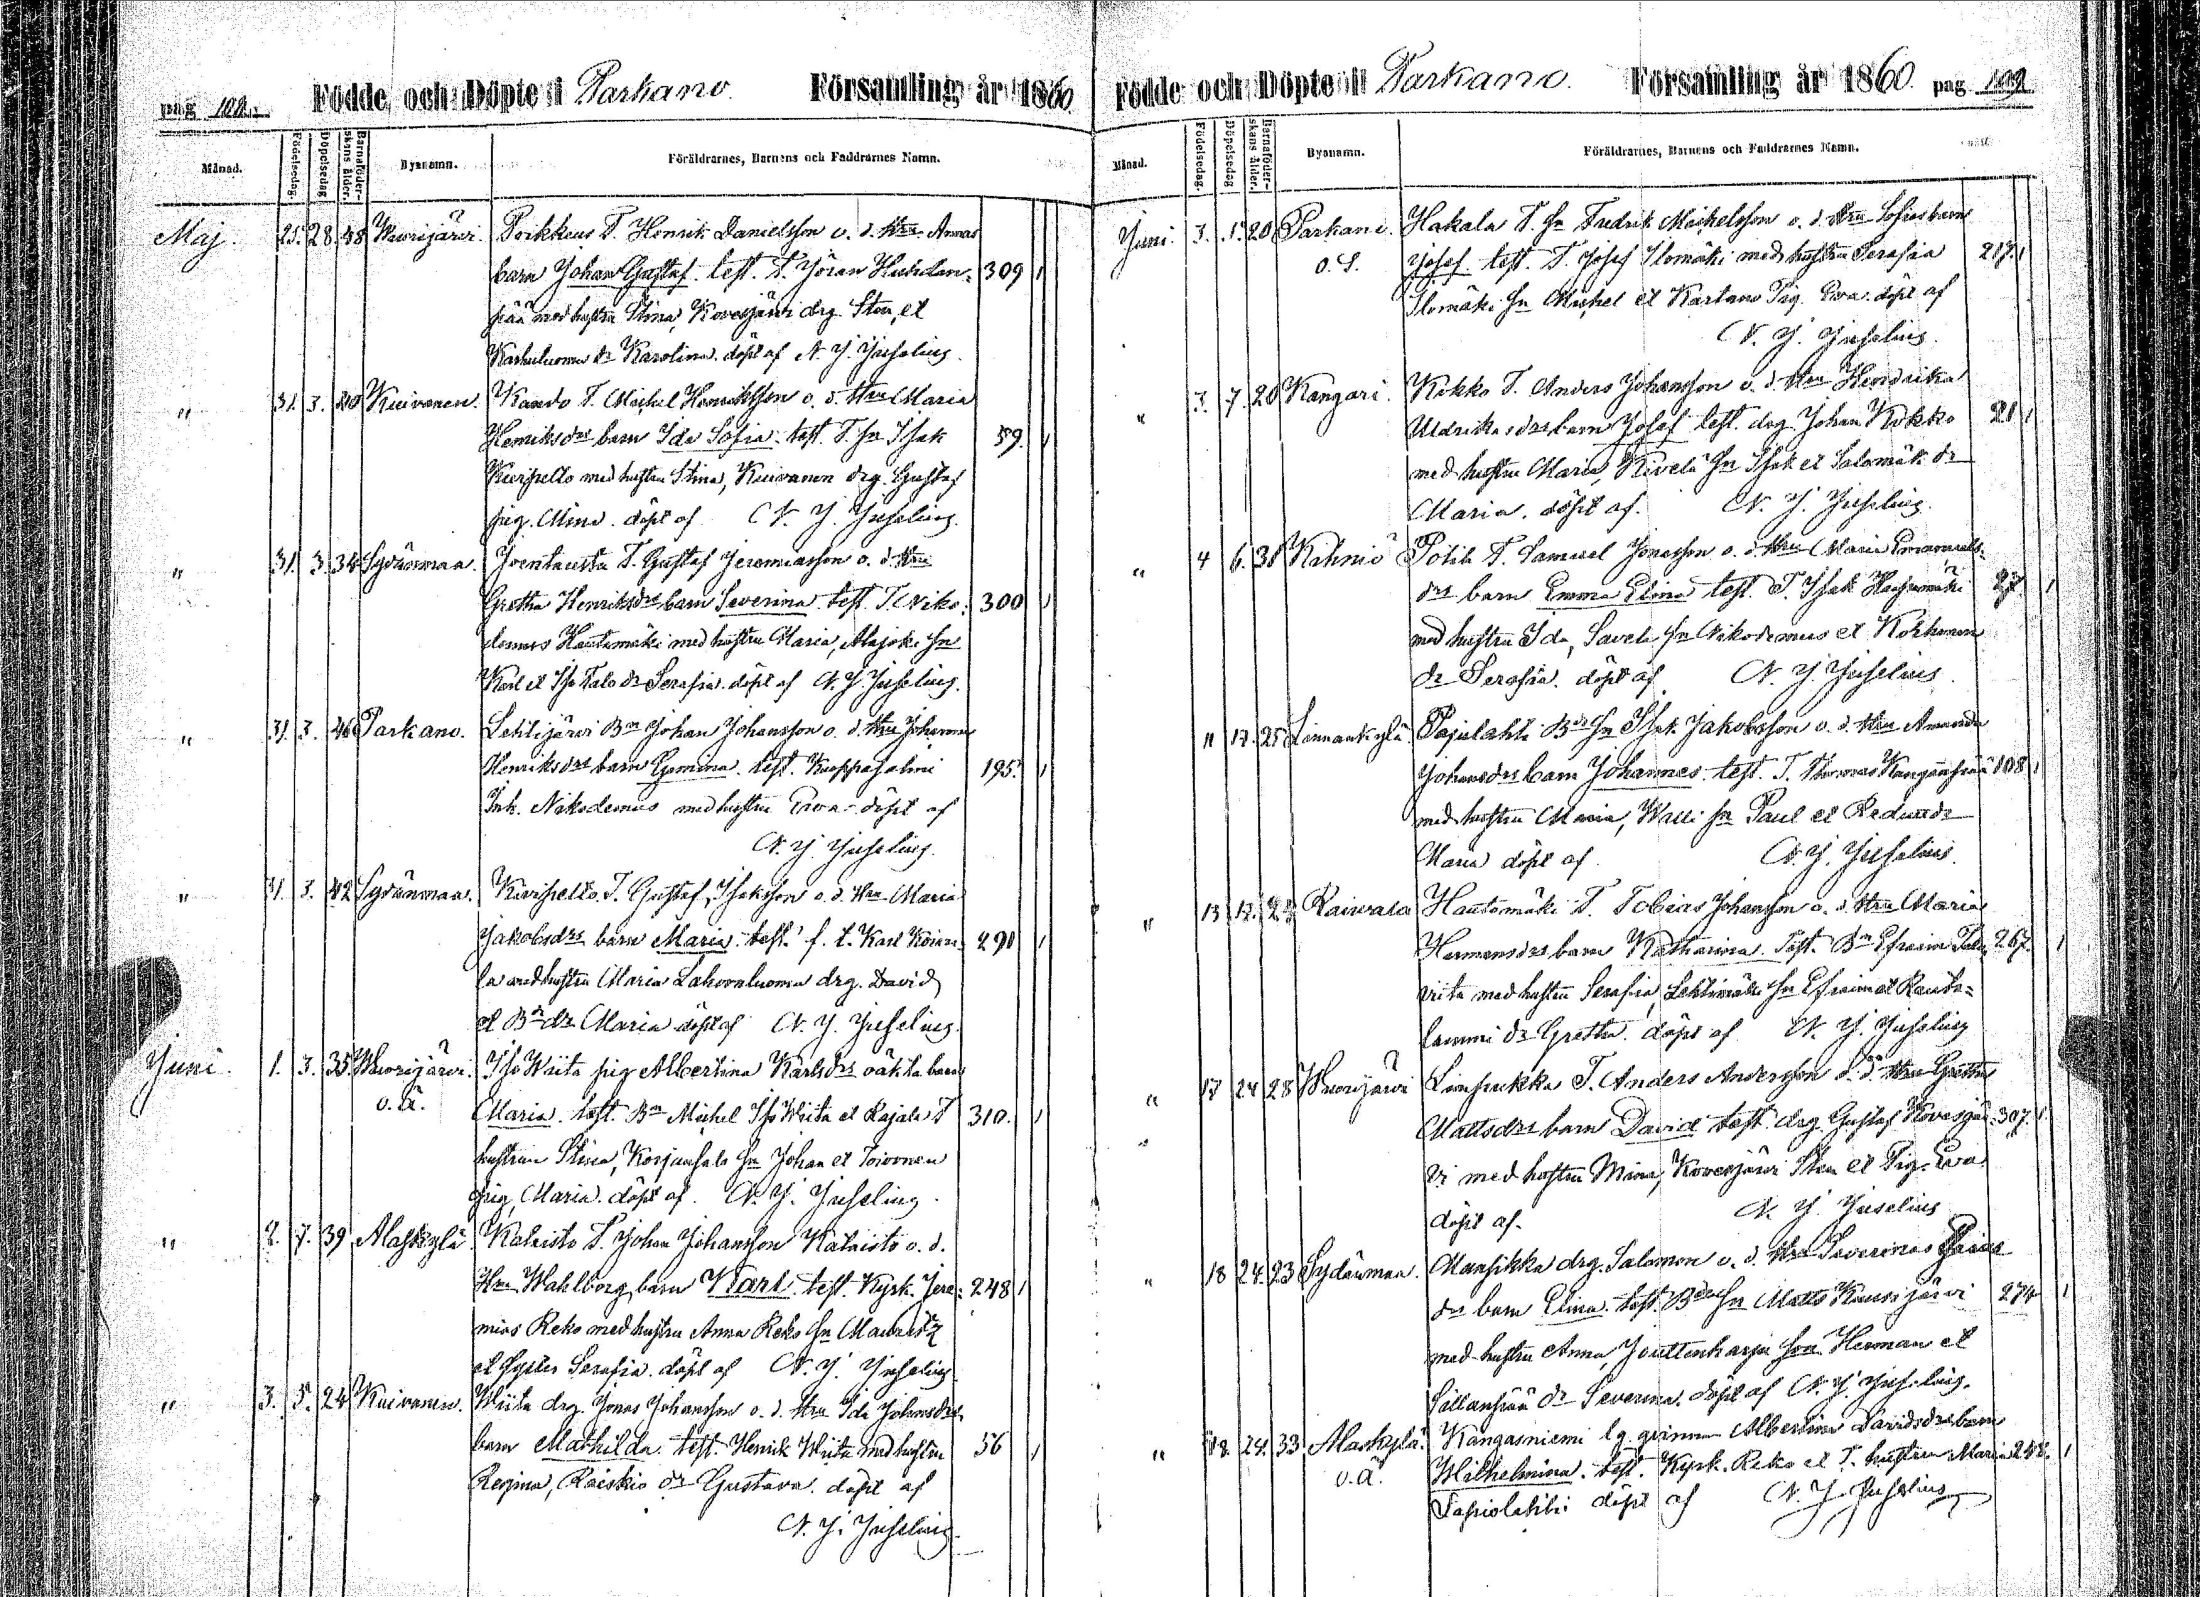 pag 102. Födde och Döpte i Parkano. Församling år 1860.
Månad. Födelsedag. Döpelsedag. Barnaföderskans ålder. Byanamn. Föräldrarnes, Barnens och Faddrarnes Namn.
Maj. 25. 28. 38 Wuorijärvi. Poikkeus T. Henrik Danielsson o. d. Hru Annas
barn Johan Gustaf. test. T. Jöran Huhdan- 309 1
pää med hustru Stina, Kovesjärvi drg. Sten, et
Karhuluoma dr Karolina. döpt af N. J. Juselius.
" 31. 3. 20 Kuivanen. Kando T. Michel Henriksson o. d. Hru Maria
Henriksdrs barn Ida Sofia. test. T. Sn Isak 59. 1
Kierpelto med hustru Stina, Kuivanen drg. Gustaf
pig. Mina. döpt af N. J. Juselius.
" 31. 3. 34 Sydänmaa. Joentausta T. Gustaf Jeremiasson o. d. Hru
Gretha Henriksdrs barn Severina. test. T. Niko- 300 1
demus Hautamäki med hustru Maria, Alajoki Sn
Karl et Iso Talo dr Serafia. döpt af N. J. Juselius.
" 31. 3. 26 Parkano. Lehtijärvi Bn Johan Johansson o. d. Hru Johanna
Henriksdrs barn Gemima. test. Kuoppasalmi 195. 1
Inh. Nikodemus med hustru Ewa. döpt af
N. J. Juselius.
" 31. 3. 42 Sydänmaa. Kivipelto T. Gustaf Isaksson o. d. Hru Maria
Jakobsdrs barn Maria. test. f. t. Karl Koivu- 290 1
la med hustru Maria Lahonluoma drg. David
et Bn dr Maria döpt af N. J. Juselius.
Juni. 1. 3. 35. Wuorijärvi. Iso Wiita pig Albertina Karlsdrs oäkta barn
o. ä. Maria. test. Bn Michel Iso Wiita et Rajala T 310. 1
hustrun Stina, Korjansalo Sn Johan et Toivonen
pig. Maria. döpt af. N. J. Juselius.
" 2. 7. 39 Alaskylä Kalaisto T. Johan Johansson Kalaisto o. d.
Hru Wahlborg, barn Karl. test. Kyrk. Jere- 248 1
mias Reko med hustru Anna Reko Sn Mauritz
et Syster Serafia. döpt af N. J. Juselius
" 3. 5. 24 Kuivanen. Wiita drg. Jonas Johansson o. d. Hru Ida Johansdrs
barn Mathilda. test. Henrik Wiita med hustru 56 1
Regina, Raiskio dr Gustava. döpt af
N. J. Juselius.
Födde och Döpte i Parkano. Församling år 1860. pag 102
Månad. Födelsedag. Döpelsedag Barnaföderskans ålder. Byanamn. Föräldrarnes, Barnens och Faddrarnes Namn.
Juni 3. 1. 20 Parkano. Hakala T. Sn Fredrik Michelsson o. d. Hru Sofias barn
Josef. test. T. Josef Ilomäki med hustru Serafia 217. 1
Ilomäki Sn Michel et Kartano Pig. Ewa. döpt af
N. J. Juselius.
" 3. 7. 20 Kangari. Kokko T. Anders Johansson o. d. Hru Hendrika
Uldrika sdrs barn Josef test. drg. Johan Kokko 21 1
med hustru Maria, Kivelä Sn Isak et Salomäki dr
Maria. döpt af. N. J. Juselius.
" 4 6. 38 Kihniö Potila T. Samuel Jonasson o. d. Hru Maria Emanuels-
drs barn Emma Elina test. T. Isak Harjumäki 27 1
med hustru Ida, Savela Sn Nikodemus et Korhonen
dr Serafia. döpt af N. J. Juselius.
11 17. 25 Linnankylä Pajulahti Bde Sn Isak Jakobsson o. d. Hru Amanda
Johansdrs barn Johannes. test. T. Thomas Kangaanpää 108 1
med hustru Maria, Walli Sn Paul et dr
Maria döpt af N. J. Juselius.
" 13 17. Raivala Hautamäki T. Tobias Johansson o. d. Hru Maria
Hermansdrs barn Katharina. Test. Bn Efraim Talon- 267. 1
viita med hustru Serafia, Lehtimäki Sn Efraim et Rauta-
lammi dr Gretha. döpt af N. J. Juselius
" 17 24 28 Wuorijärvi Linpukka T. Anders Andersson o. d. Hru Gretha
Mattsdrs barn David test. drg. Gustaf Kovesjär- 307. 1.
vi med hustru Mina, Kovesjärvi Sten et Pig. Ewa.
döpt af. N. J. Juselius
" 18 24. 23 Sydänmaa. Mansikka drg. Salomon o. d. Hru Severinas Isaias
drs barn Elina. test. Bde Sn Matts Kuusijärvi 274 1
med hustru Anna, Jouttenharju Sn Herman et
Sillanpää dr Severina. döpt af N. J. Juselius.
" 18. 24. 33 Alaskylä. Kangasniemi lg. qvinnan Albertina Davidsdrs barn
o. ä. Wilhelmina. test. Kyrk. Reko et T. hustrun Maria 248. 1
Lapiolahti döpt af N. J. Juselius